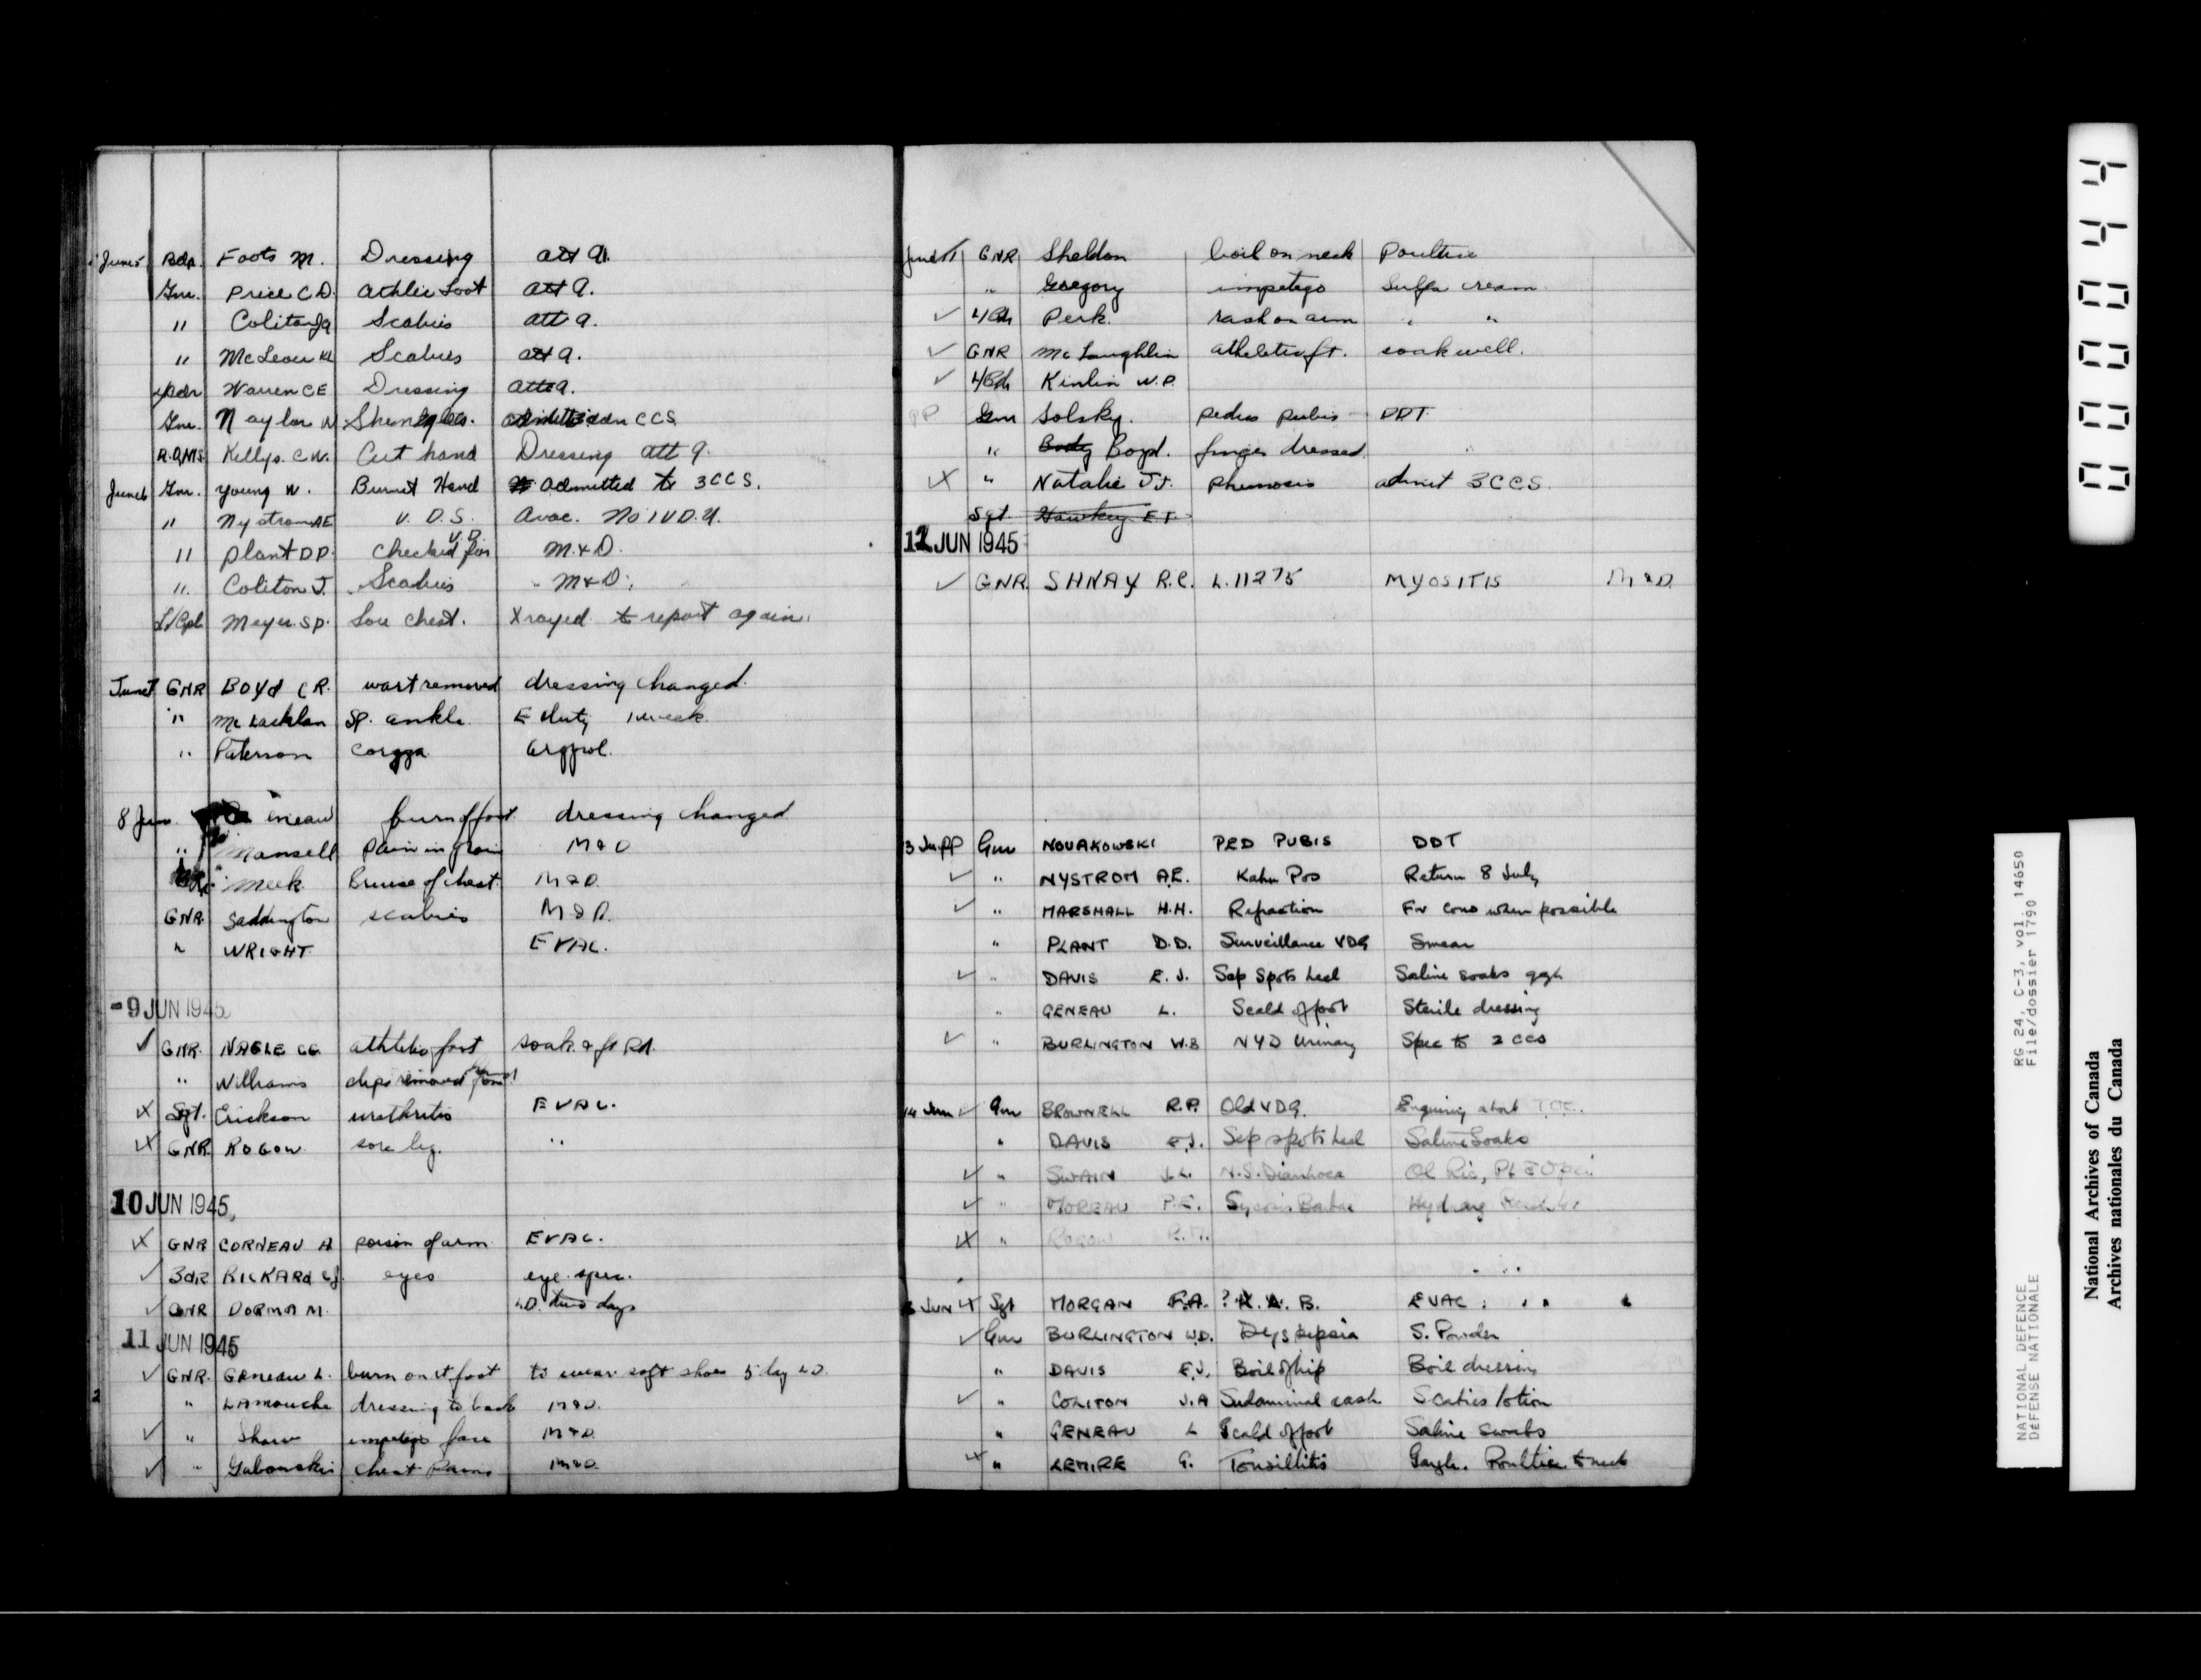 June 5 Bdr. Foots M. Dressing att A.
Gnr. Price C D. athlic foot att A.
" Coliton JA Scabies att A.
" McLeou Scabies att A.
Warren CE Dressing att A.
Gnr. Naylor W CCS
R.Q.M.S. Kellys. C.W. Cut hand Dressing att A.
June 6 Gnr. Young W. Burnt Hand Admitted to 3 CCS.
" Nystrom AE V. D. S. Avac. No 1 V D. U.
" Plant D P. Checked for V.D. M. & D.
" Coliton J. Scabies M & D.
L/Cpl. Meyer. S P. Sore Chest. Xrayed to report again.
June 7 GNR BOYd C R. wart removed dressing changed.
" Mc Lachlan SP. ankle. E duty 1 week.
" Paterson
8 Jun. burn of foot dressing changed
" Mansell Pain in groin M & D
Meek bruise of chest. M & D.
GNR. Saddington scabies M & D.
" WRIGHT. EVAC.
-9 JUN 1945
✓ GNR. NAGLE athletic foot soak
" Williams clips removed
X Sgt. Erickson urethritis EVAC.
X GNR. ROGOW. sore leg. "
10 JUN 1945
X GNR CORNEAU A poison of arm EVAC.
✓ BdR RICKARd eyes eye spec.
✓ GNR DORMA M. L.D. two days
11 JUN 1945
✓ GNR. GENeau L. burn on rt foot to wear soft shoes 5 day L.D.
" LAmouche dressing to back M & D.
✓ " Shaw impetigo face M & D.
✓ " Gabouskis Chest Pains M & D.
2
June 11 GNR Sheldon boil on neck Poultice
" Gregory impetigo Sulfa cream
✓ Perk. rash on arm " "
✓ GNR McLaughlin atheletic ft. soak well.
✓ Kinlin W. P.
PP Gnr Solsky. pedics pubis DDT.
" Boyd. finger dressed.
X " Natalie J J. Phimosis admit 3 C.C.S.
Sgt. Hawkey E T.
12 JUN 1945
✓ GNR. SHNAY R.C. L. 11275 MYOSITIS M & D.
3 Jun PP Gnr NOVAKOWSKI PED PUBIS DDT
✓ " NYSTROM A.E. Kahn Pos Return 8 July
✓ " MARSHALL H.H. Refraction For cons when possible
" PLANT D.D. Surveillance VDG Smear
✓ " DAVIS E. J. Sep spots heel Saline soaks
" GENEAU L. Scald of foot Sterile dressing
✓ " BURLINGTON W.D NYD Urinary Spec to 2 CCS
14 Jun ✓ Gnr BROWNELL R.P. Old VDG. Enquiring about
" DAVIS E.J. Sep spots heel Saline Soaks
✓ " SWAIN J.L. N.S. Diarrhoea Ol Ric,
✓ " MOREAU P.E. Sycosis Barbae Hydrarg
X " ROGOW
JUN X Sgt MORGAN F.A. EVAC.
✓ Gnr BURLINGTON W.D. Dyspepsia S. Powder
" DAVIS E.J. Boil of hip Boil dressing
✓ " COLITON J.A Sudaminal rash Scabies lotion
" GENEAU L Scald of foot Saline swabs
X " LEMIRE G. Tonsillitis Gargle. Poultice to neck
0000444
RG 24, C-3, vol 14650
File/dossier 1790
NATIONAL DEFENCE
DEFENSE NATIONALE
National Archives of Canada
Archives nationales du Canada